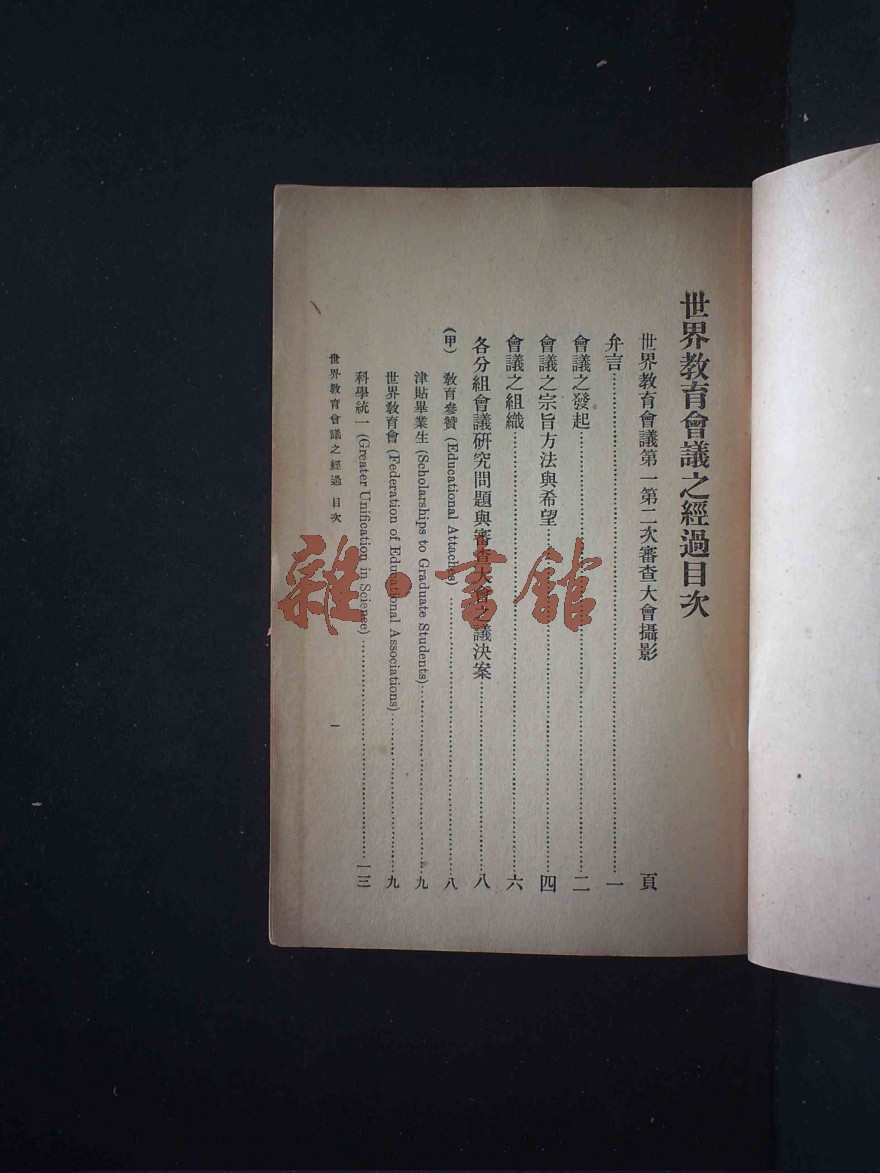 世界教育會議之經過目次
世界教育會議第一第二次審查大會攝影 頁
弁言 一
會議之發起 二
會議之宗旨方法與希望 四
會議之組織 六
各分組會議研究問題與審查大會之議決案 八
(甲) 教育參贊 (Educational Attaches) 八
津貼畢業生 (Scholarships to Graduate Students) 九
世界教育會 (Federation of Educational Associations) 九
科學統一 (Greater Unification in Science) 一三
世界教育會議之經過 目次 一
雜·書館